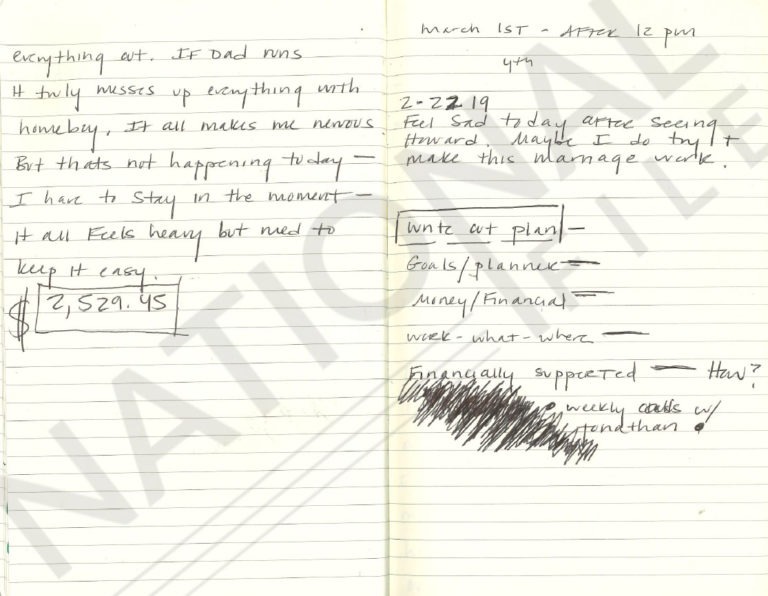 everything out. IF Dad runs
It truly messes up everything with
homeboy. It all makes me nervous.
But thats not happening today —
I have to stay in the moment —
It all Feels heavy but need to
keep it easy.
$ 2,529.45
March 1ST - AFTER 12 pm
4th
2-22 19
Feel Sad today after seeing
Howard. Maybe I do try +
make this marriage work.
write out plan —
Goals/planner —
Money/Financial —
work - what - where —
Financially supported — How?
• weekly calls w/
Jonathan •
NATIONAL
FILE